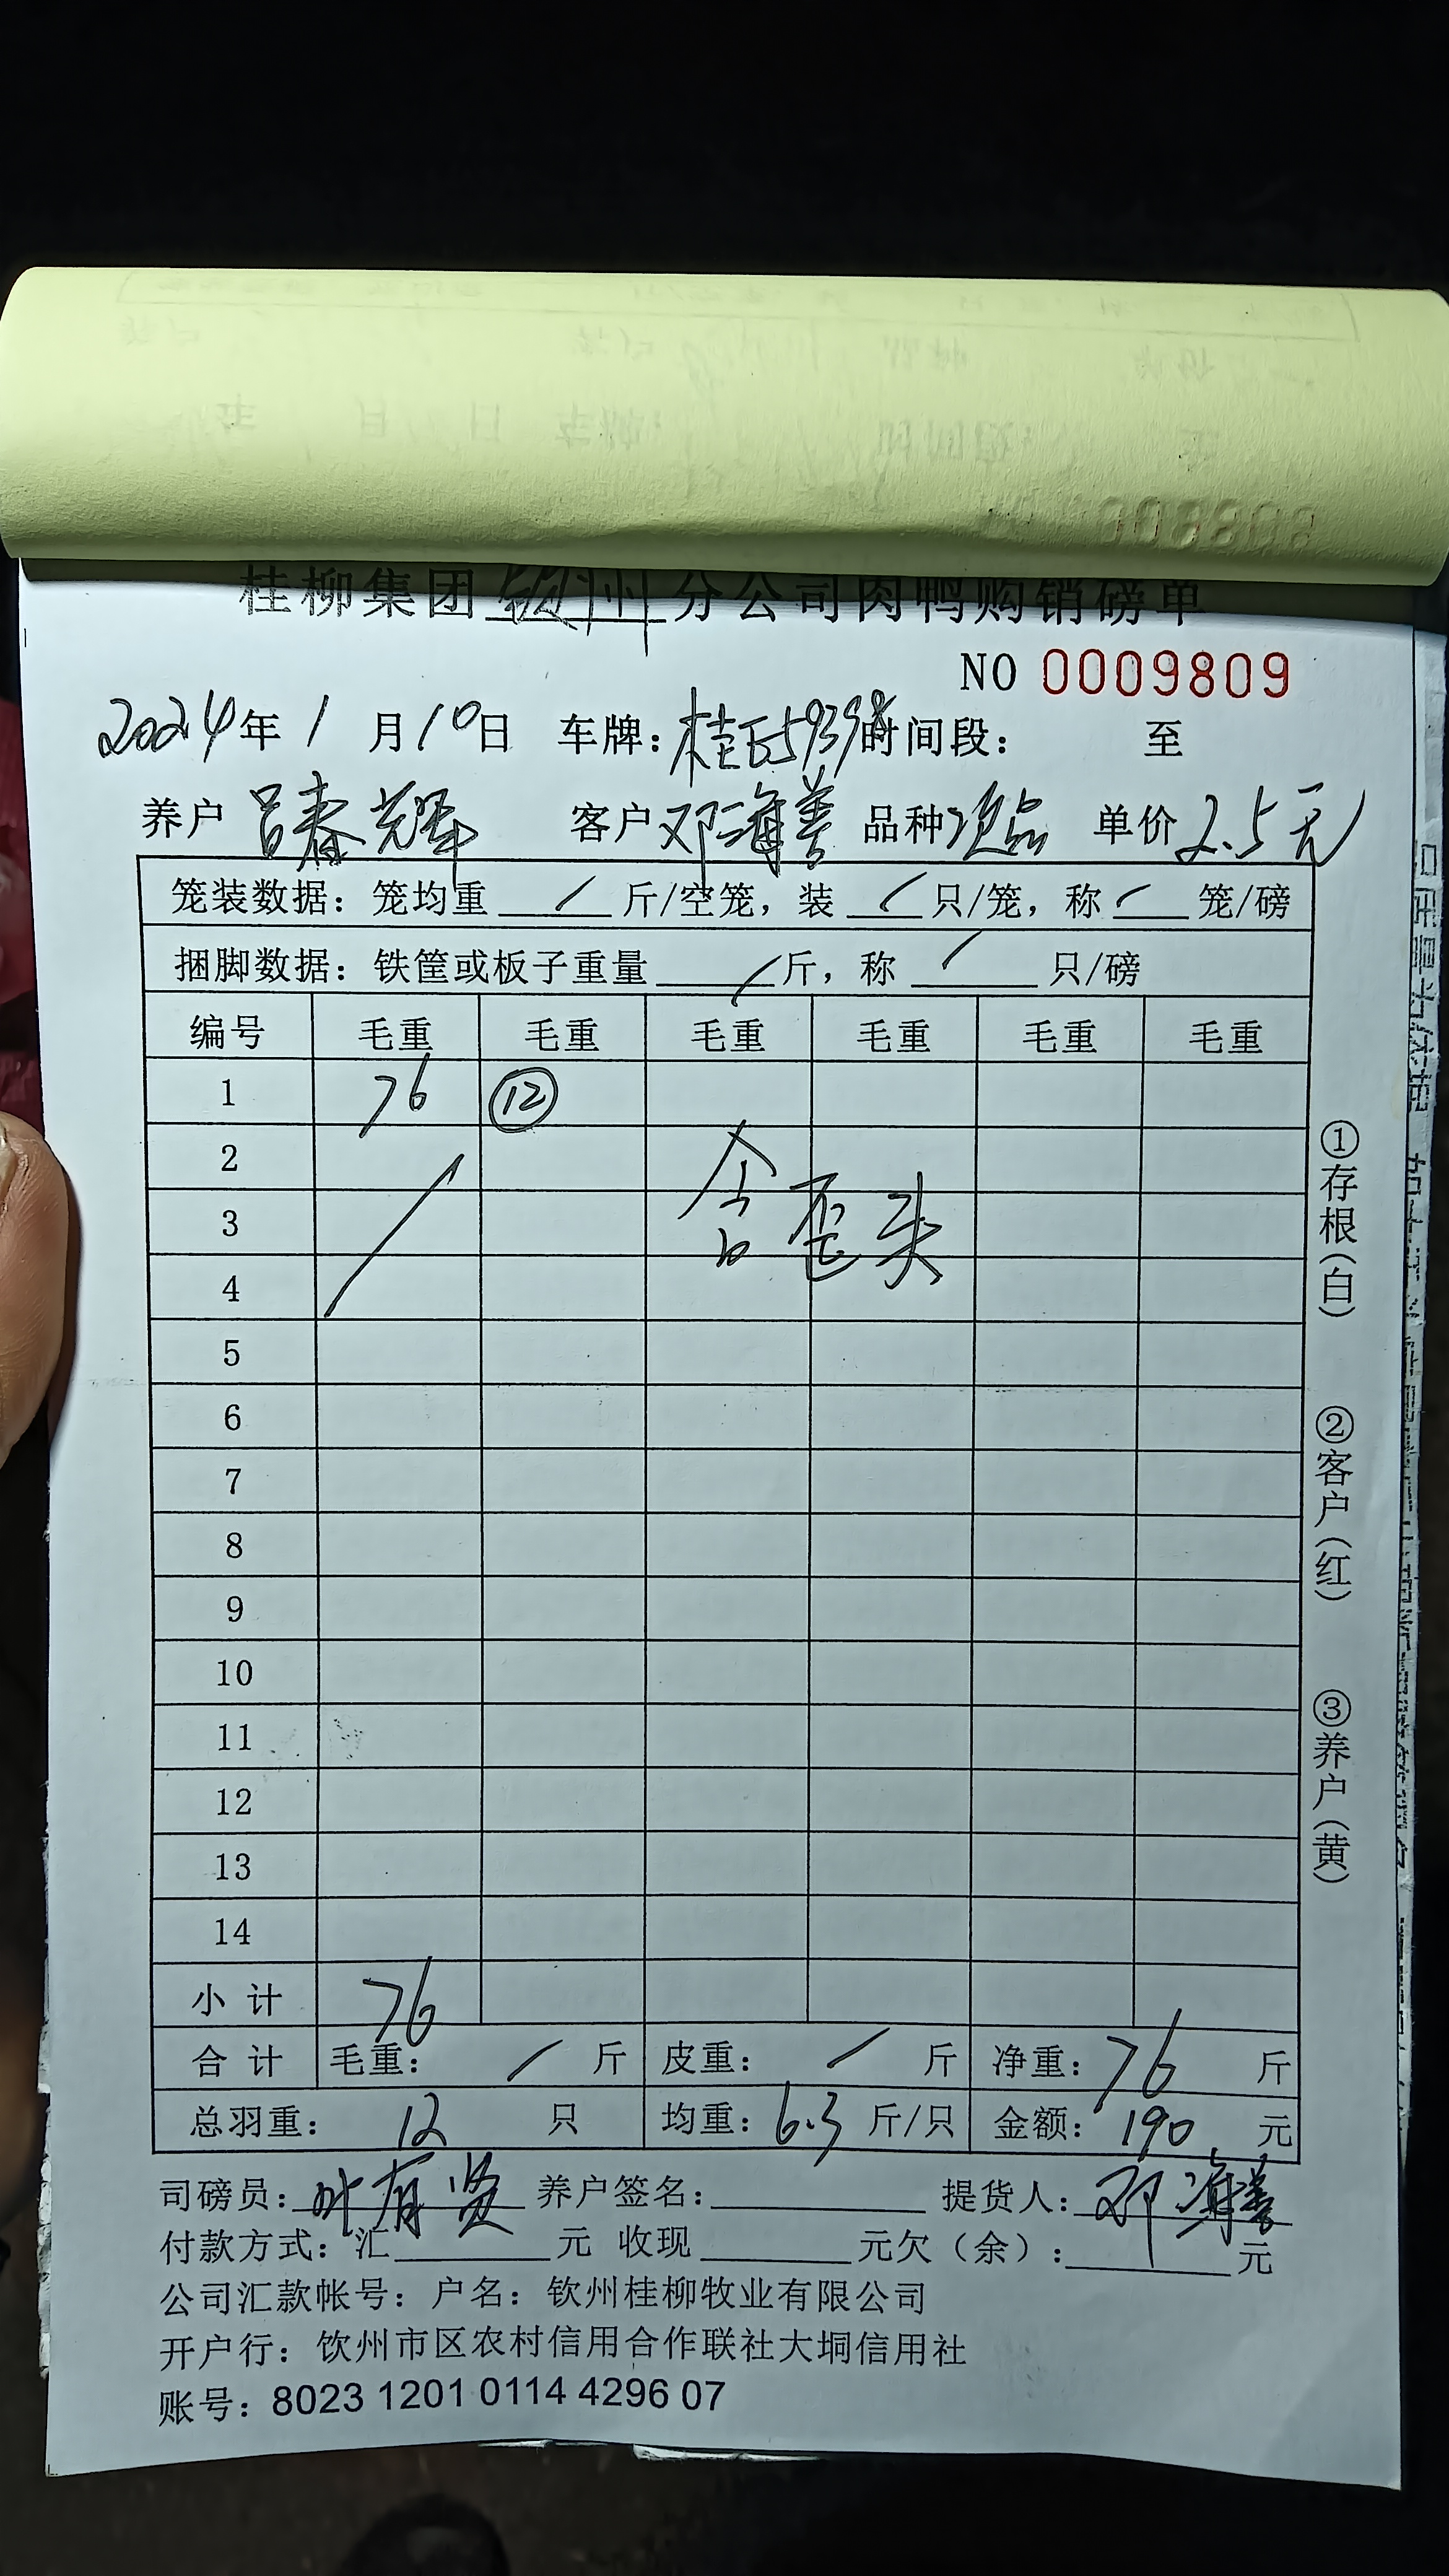 桂柳集团钦州分公司肉鸭购销磅单
NO 0009809
2024年1月10日 车牌: 时间段: 至
养户 吕春辉 客户 邓海善 品种 次品 单价 2.5元
笼装数据: 笼均重 / 斤/空笼, 装 / 只/笼, 称 / 笼/磅
捆脚数据: 铁筐或板子重量 / 斤, 称 / 只/磅
编号 毛重 毛重 毛重 毛重 毛重 毛重
1 76 ⑫
2
3 含歪头
4
5
6
7
8
9
10
11
12
13
14
小计 76
合计 毛重: / 斤 皮重: / 斤 净重: 76 斤
总羽重: 12 只 均重: 6.3 斤/只 金额: 190 元
司磅员: 叶有贤 养户签名: 提货人: 邓海善
付款方式: 汇 元 收现 元欠(余): 元
公司汇款帐号: 户名: 钦州桂柳牧业有限公司
开户行: 钦州市区农村信用合作联社大垌信用社
账号: 8023 1201 0114 4296 07
①存根(白)
②客户(红)
③养户(黄)